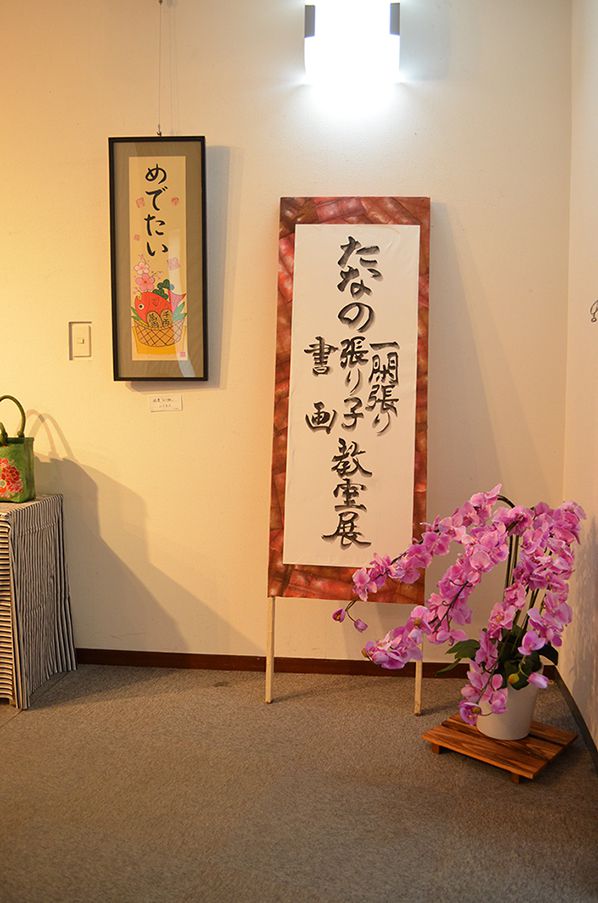 めでたい
たなの
一閑張り
張り子
書画
教室展